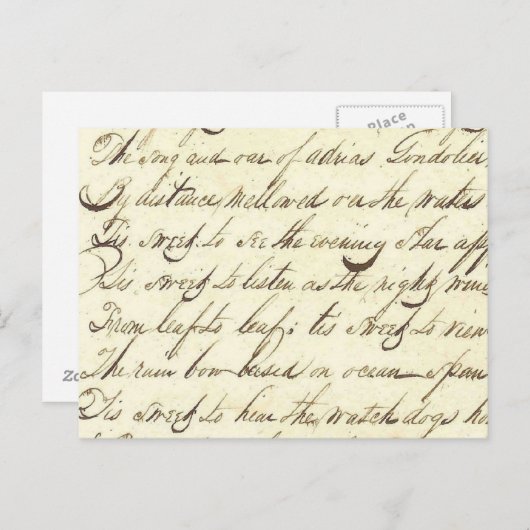 Place
The song and oar of adrias Gondolier
By distance mellowed o'er the waters
Tis sweet to see the evening star app
Tis sweet to listen as the night wind
From leaf to leaf; tis sweet to view
The rain bow based on ocean span
Tis sweet to hear the watch dogs